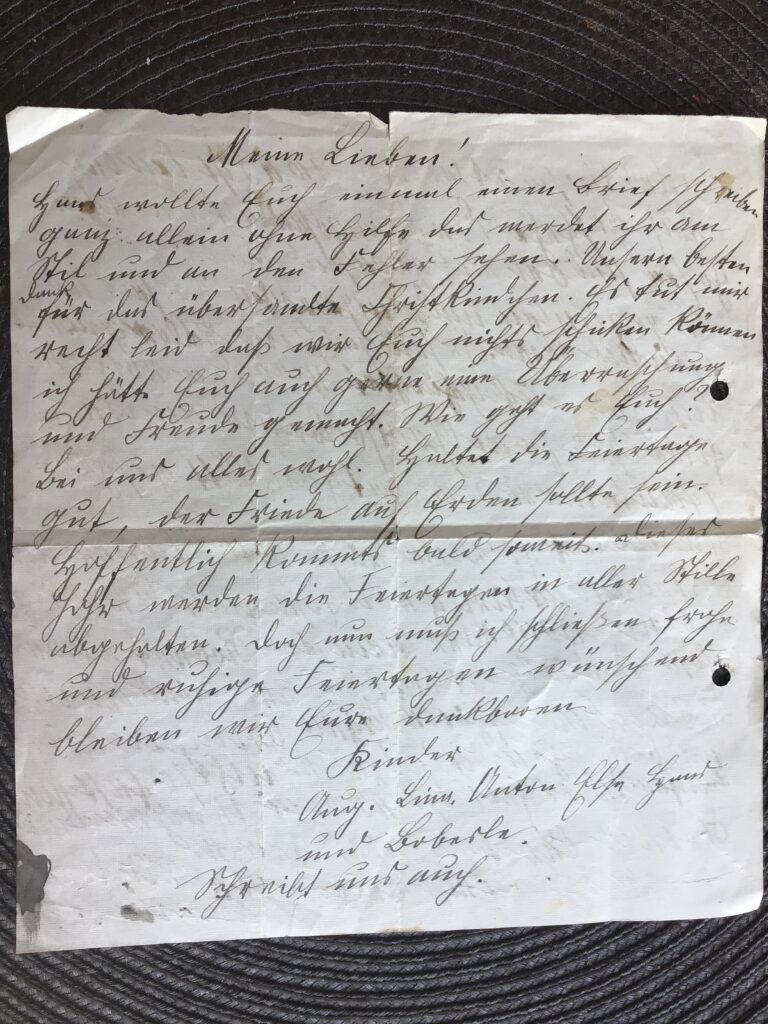 Meine Lieben!
Hans wollte Euch einmal einen Brief schreiben
ganz allein ohne Hilfe das werdet ihr am
Stil und an den Fehler sehen. Unsern besten
Dank
für das übersandte Christkindchen. Es tut mir
recht leid daß wir Euch nichts schicken können
ich hätte Euch auch gerne eine Überraschung
und Freude gemacht. Wie geht es Euch?
Bei uns alles wohl. Haltet die Feiertage
gut, der Friede auf Erden sollte sein.
Hoffentlich kommts bald soweit. Dieses
Jahr werden die Feiertagen in aller Stille
abgehalten. Doch nun muß ich schließen frohe
und ruhige Feiertagen wünschend
bleiben wir Eure dankbaren
Kinder
Aug. Lina. Anton Else Hans
und Boberle.
Schreibt uns auch.